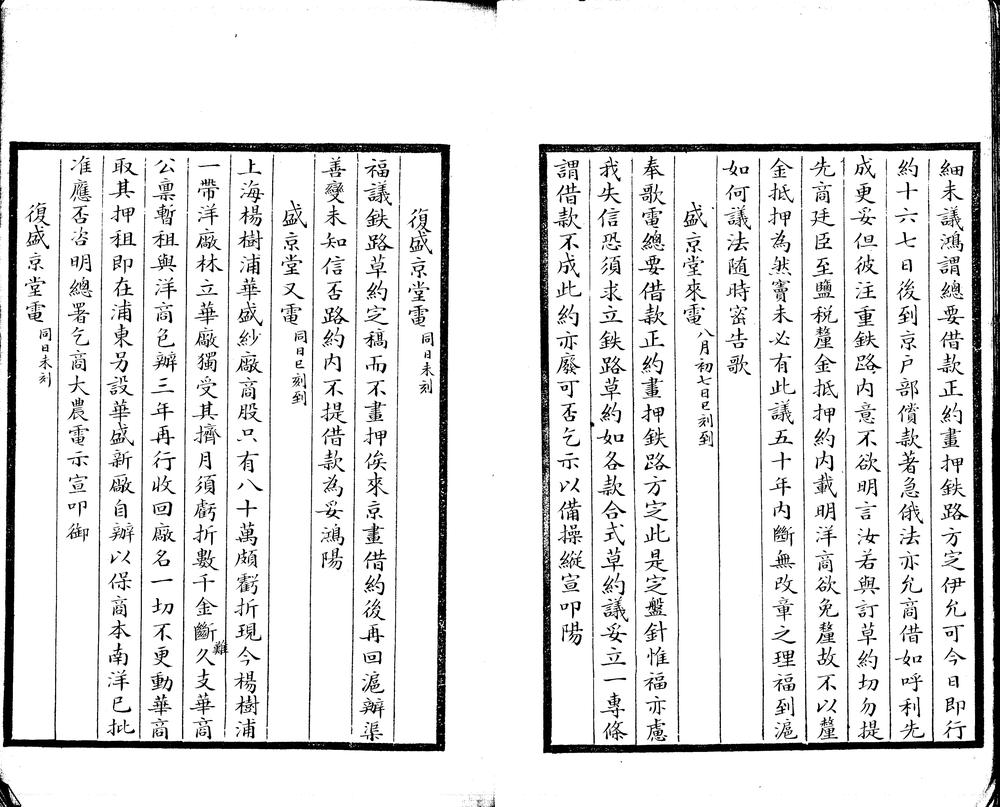 細未議鴻謂總要借款正約畫押鉄路方定伊允可今日即行
約十六七日後到京戶部償款著急俄法亦允商借如呼利先
成更妥但彼注重鉄路內意不欲明言汝若與訂草約切勿提
先商廷臣至鹽稅釐金抵押約內載明洋商欲免釐故不以釐
金抵押為然竇未必有此議五十年內斷無改章之理福到滬
如何議法隨時密告歌
盛京堂來電八月初七日巳刻到
奉歌電總要借款正約畫押鉄路方定此是定盤針惟福亦慮
我失信恐須求立鉄路草約如各款合式草約議妥立一專條
謂借款不成此約亦廢可否乞示以備操縱宣叩陽
復盛京堂電同日未刻
福議鉄路草約定稿而不畫押俟來京畫借約後再回滬辦渠
善變未知信否路約內不提借款為妥鴻陽
盛京堂又電同日巳刻到
上海楊樹浦華盛紗廠商股只有八十萬頗虧折現今楊樹浦
一帶洋廠林立華廠獨受其擠月須虧折數千金斷難久支華商
公稟暫租與洋商包辦三年再行收回廠名一切不更動華商
取其押租即在浦東另設華盛新廠自辦以保商本南洋已批
准應否咨明總署乞商大農電示宣叩御
復盛京堂電同日未刻